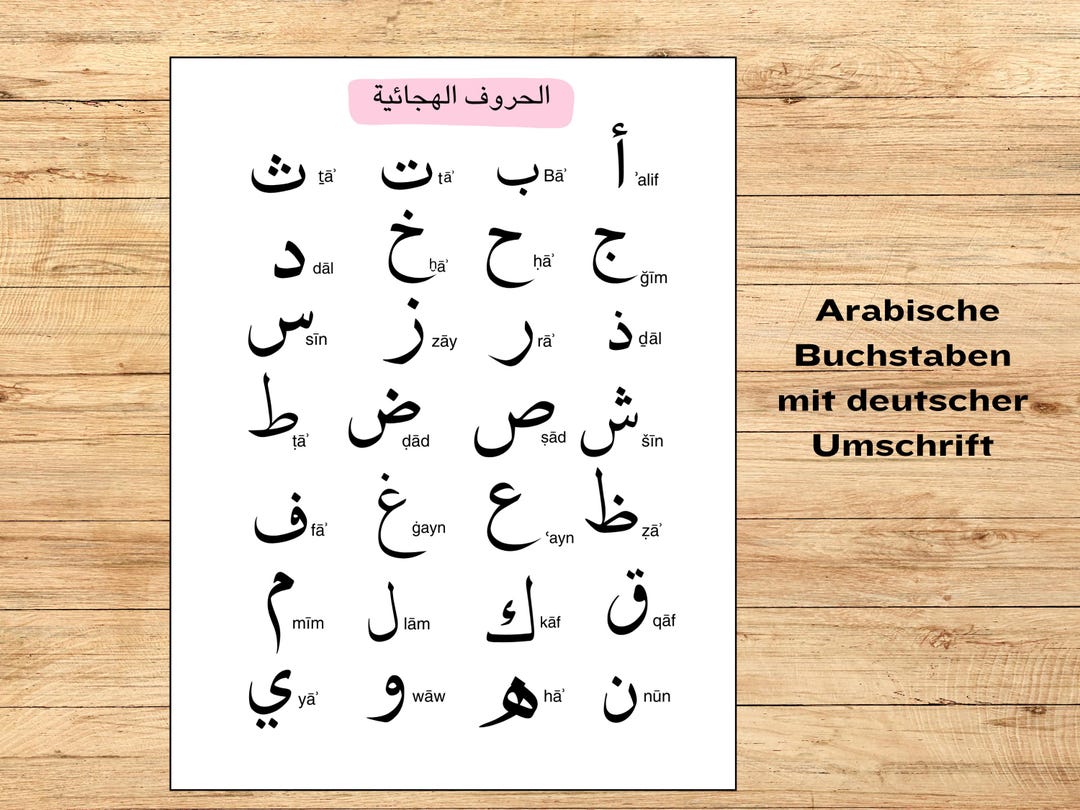 الحروف الهجائية
أ ʾalif ب Bāʾ ت tāʾ ث ṯāʾ
ج ǧīm ح ḥāʾ خ ḫāʾ د dāl
ذ ḏāl ر rāʾ ز zāy س sīn
ش šīn ص ṣād ض ḍād ط ṭāʾ
ظ ẓāʾ ع ʿayn غ ġayn ف fāʾ
ق qāf ك kāf ل lām م mīm
ن nūn ه hāʾ و wāw ي yāʾ
Arabische
Buchstaben
mit deutscher
Umschrift